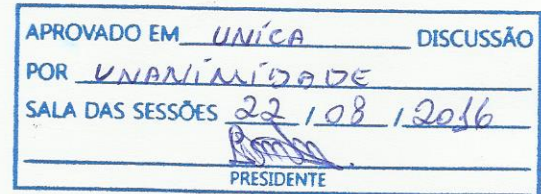 APROVADO EM UNÍCA DISCUSSÃO
POR UNANIMIDADE
SALA DAS SESSÕES 22 / 08 / 2016
PRESIDENTE